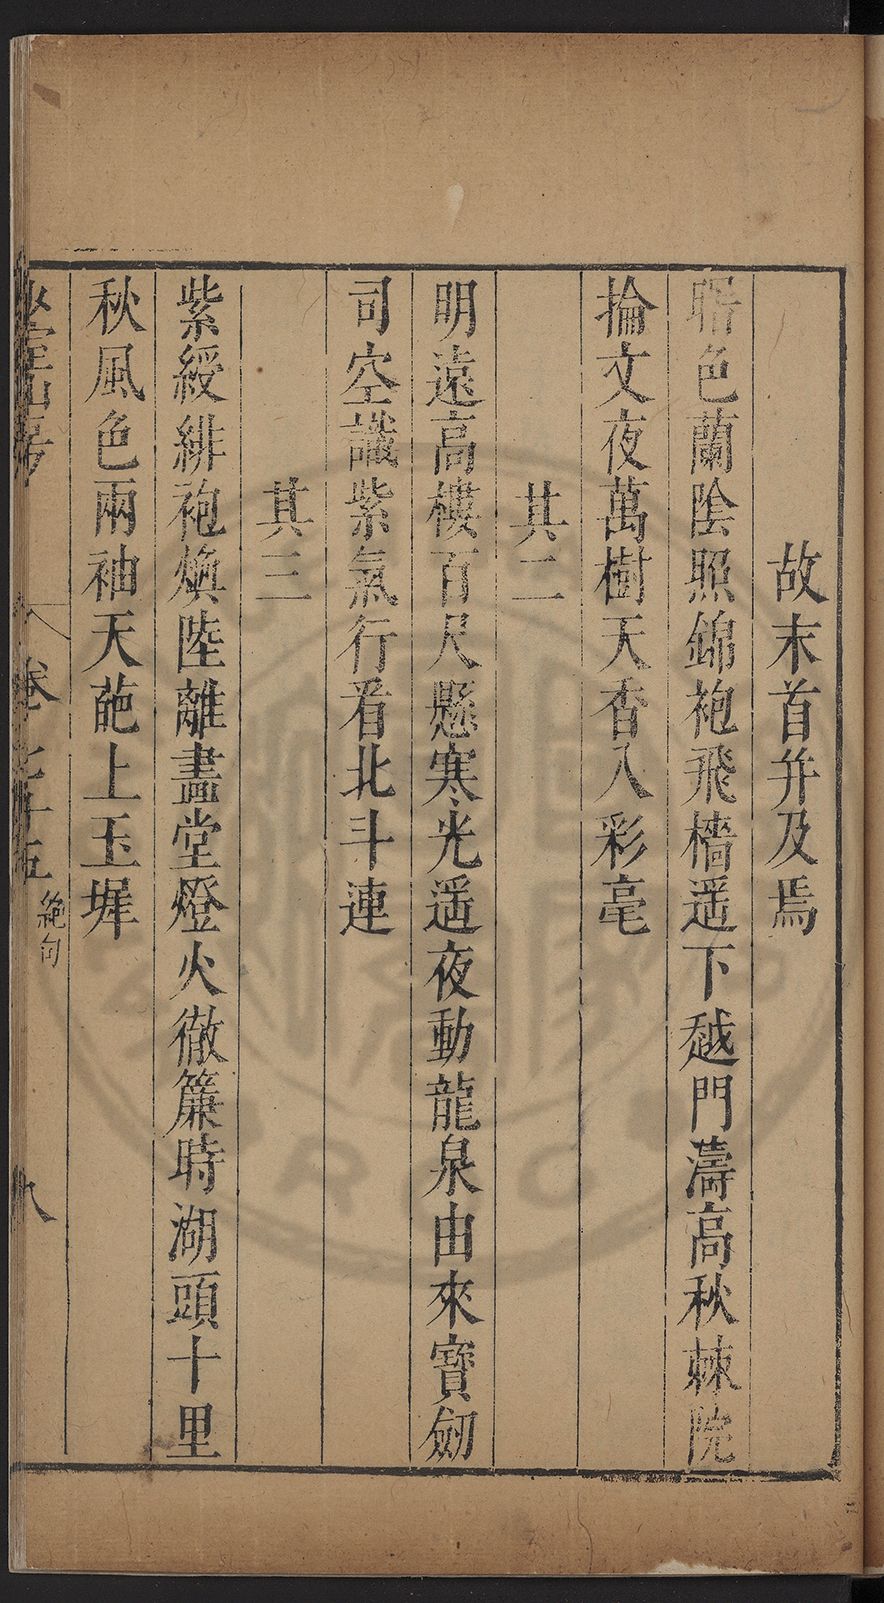 故末首并及焉
曙色蘭陰照錦袍飛檣遥下越門濤高秋棘院
掄文夜萬樹天香入彩毫
其二
明遠高樓百尺懸寒光遥夜動龍泉由來寶劒
司空識紫氣行看北斗連
其三
紫綬緋袍煥陸離畫堂燈火徹簾時湖頭十里
秋風色兩袖天葩上玉墀
山房
卷 十五 絶句
九